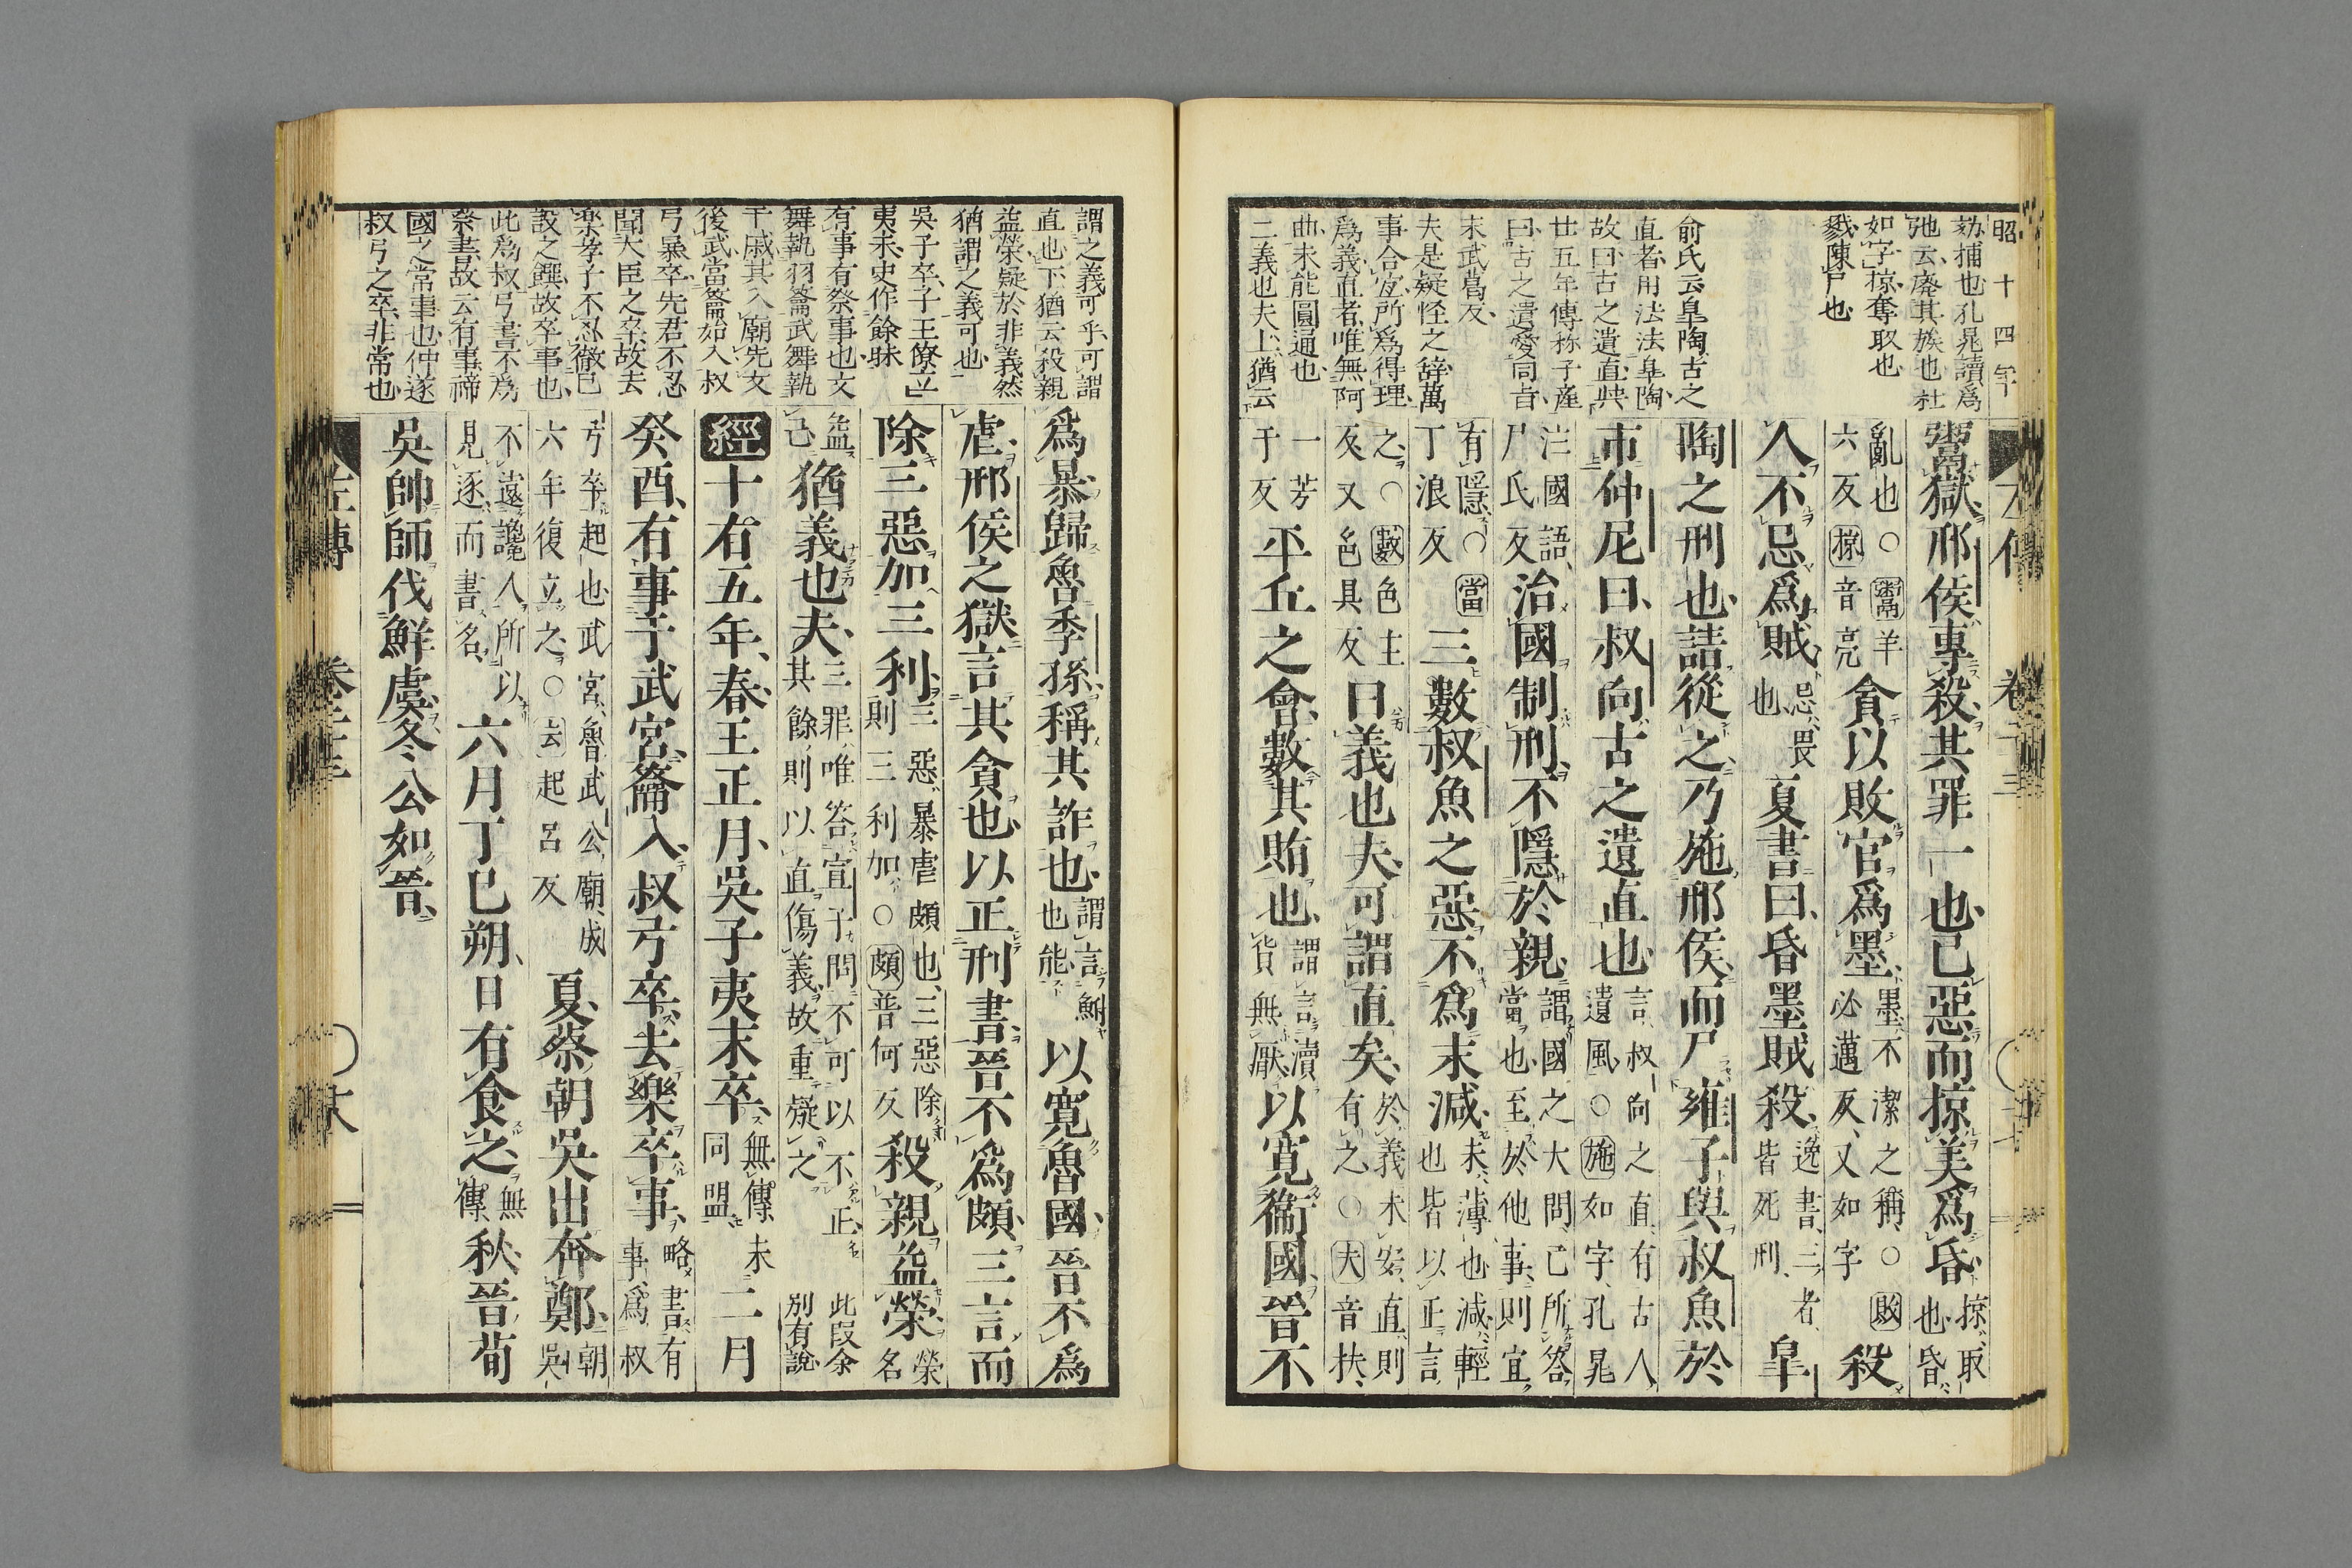 昭十四年
劾捕也孔晁讀爲
弛云廢其族也杜
如字掠奪取也
戮陳尸也
俞氏云皐陶古之
直者用法法皐陶
故曰古之遺直與
廿五年傳称子產
曰古之遺愛同旨
末武葛反
夫是疑怪之辭萬
事合宜所爲得理
爲義直者唯無阿
曲未能圓通也
二義也夫上猶云
鬻獄邢侯專殺其罪一也已惡而掠美爲昏掠取也昏
亂也○鬻羊六反掠音亮貪以敗官爲墨墨不潔之稱○敗必邁反又如字殺
人不忌爲賊忌畏也夏書曰昏墨賊殺逸書三者皆死刑皐
陶之刑也請從之乃施邢侯而尸雍子與叔魚於
市仲尼曰叔向古之遺直也言叔向之直有古人遺風○施如字孔晁
注國語尸氏反治國制刑不隱於親謂國之大問已所答當也至於他事則宜
有隱○當丁浪反三數叔魚之惡不爲末減末薄也減輕也皆以正言
之○數色主反又色具反曰義也夫可謂直矣於義未安直則有之○夫音扶
一芳于反平丘之會數其賄也謂言瀆貨無厭以寬衞國晉不
左傳 卷二十三
謂之義可乎可謂
直也下猶云殺親
益榮疑於非義然
猶謂之義可也
吳子卒子王僚立
夷末史作餘昧
有事有祭事也文
舞執羽籥武舞執
干戚其入廟先文
後武當籥始入叔
弓暴卒先君不忍
聞大臣之卒故去
樂孝子不忍徹已
設之饌故卒事也
此爲叔弓書不爲
祭書故云有事禘
國之常事也仲遂
叔弓之卒非常也
爲暴歸魯季孫稱其詐也謂言鮒也能以寬魯國晉不爲
虐邢侯之獄言其貪也以正刑書晉不爲頗三言而
除三惡加三利三惡暴虐頗也三惡除則三利加○頗普何反殺親益榮榮名
益己猶義也夫三罪唯答宣子問不可以不正其餘則以直傷義故重疑之此段余別有說
經十有五年春王正月吳子夷末卒無傳未同盟二月
癸酉有事于武宮籥入叔弓卒去樂卒事略書有事爲叔
弓卒起也武宮魯武公廟成六年復立之○去起呂反夏蔡朝吳出奔鄭朝吳
不遠讒人所以見逐而書名六月丁巳朔日有食之無傳秋晉荀
吳帥師伐鮮虞冬公如晉
左傳 卷二十三